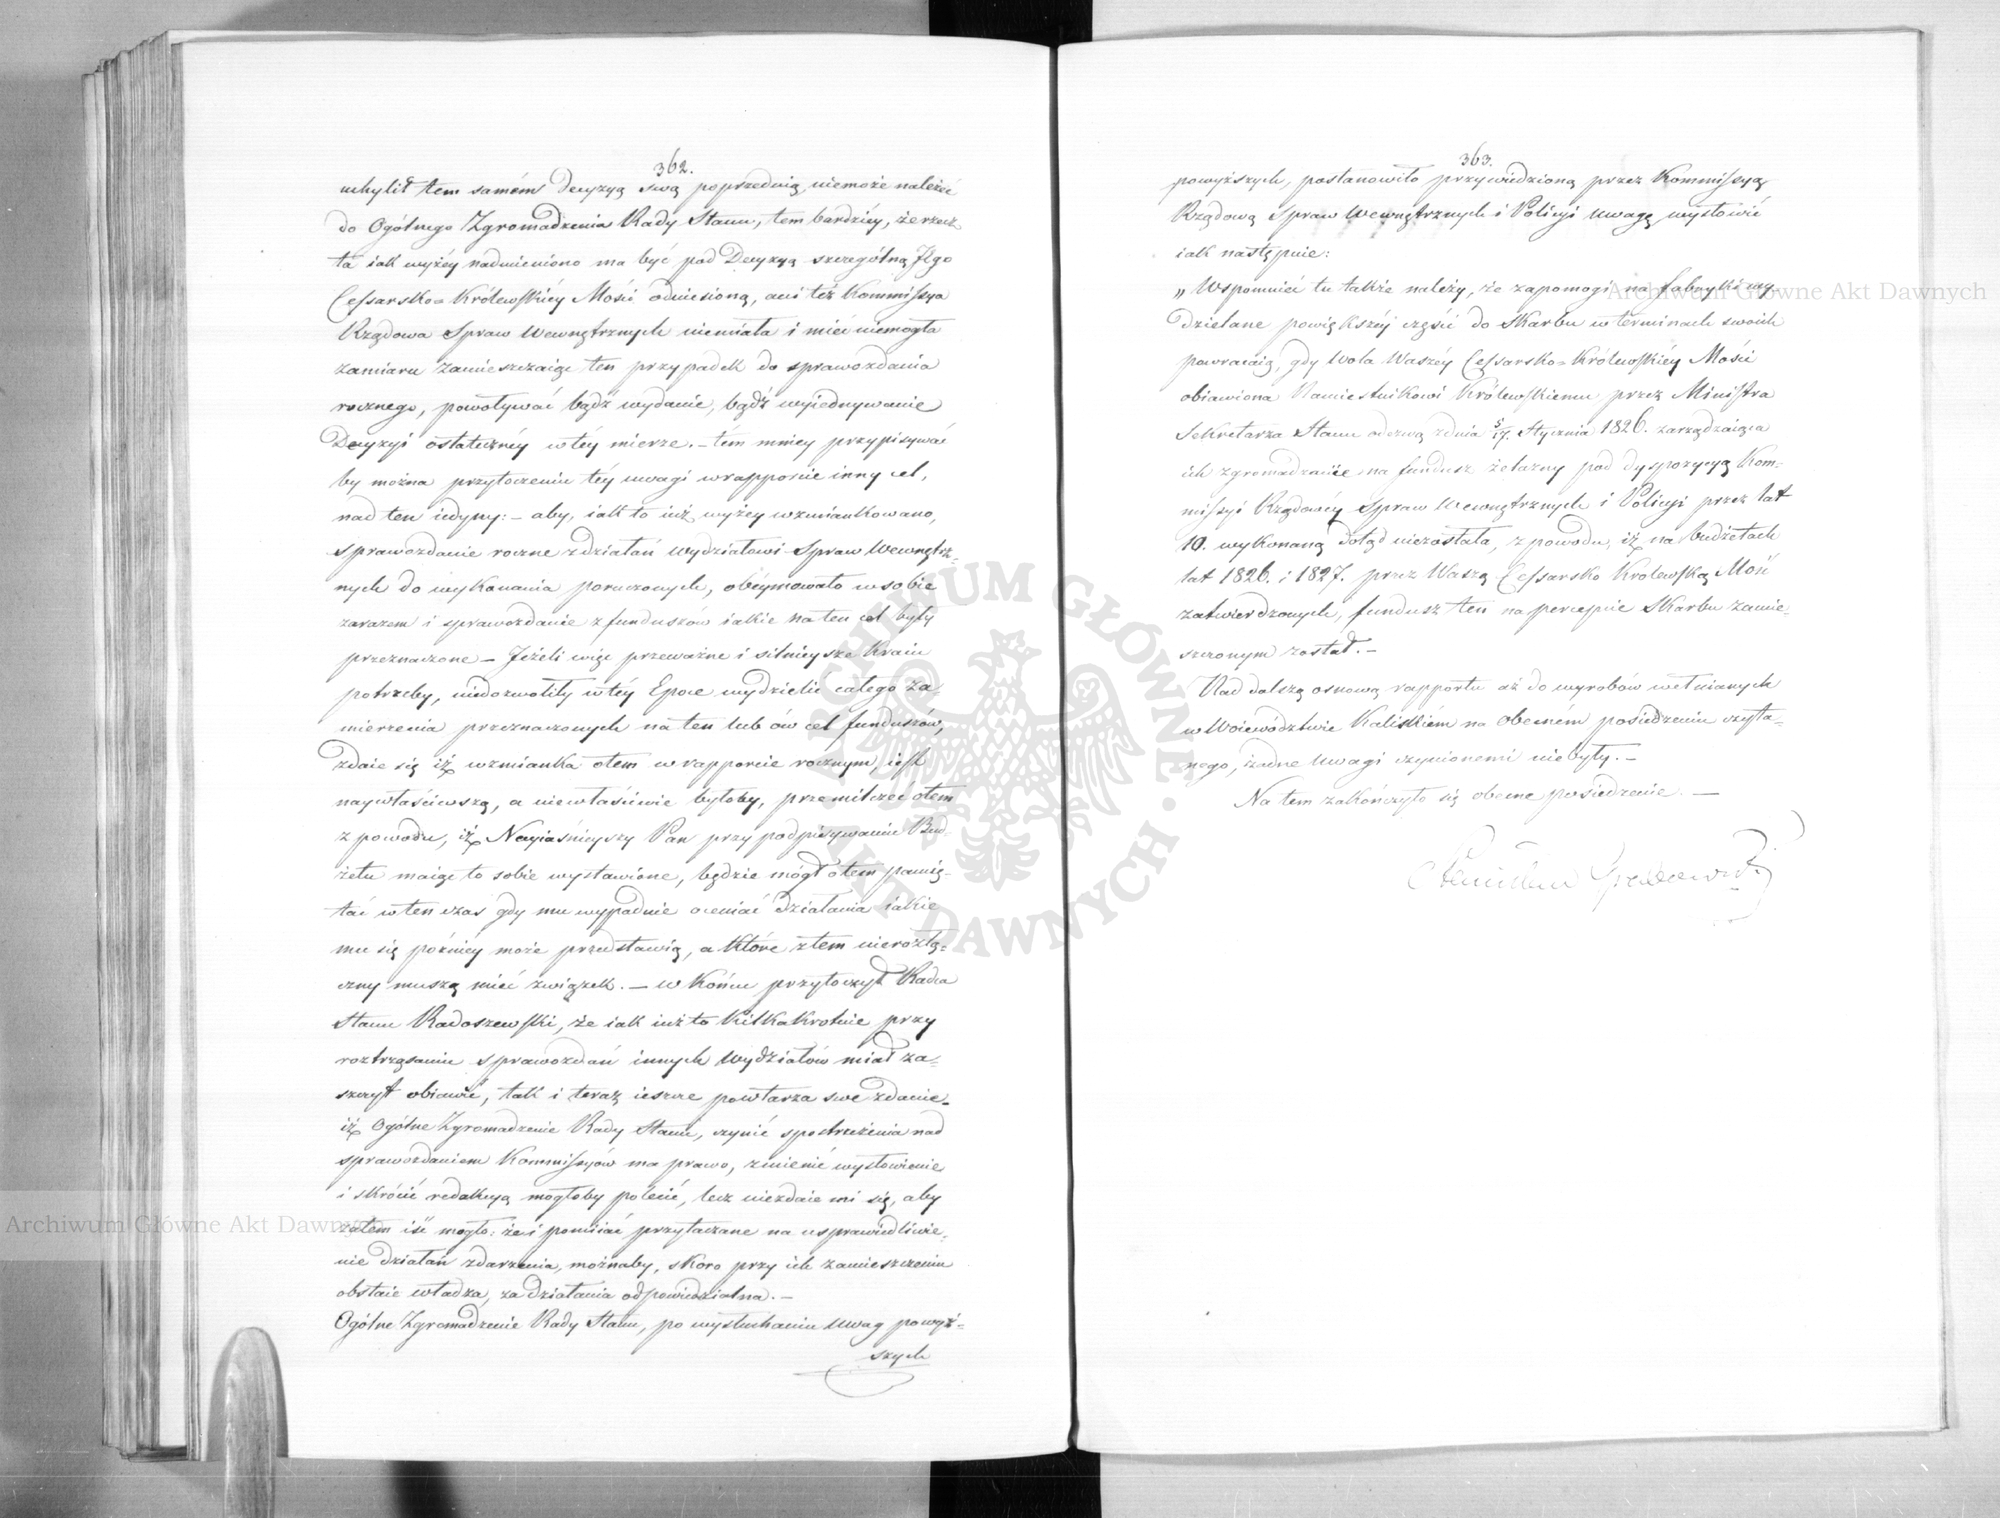 362.
uchylił tem samém decyzyą swą poprzednią, niemoże należeć
do Ogólnego Zgromadzenia Rady Stanu, tem bardziey, że rzecz
ta iak wyżéy nadmieniono ma być pod Decyzyą szczególną Jégo
Cessarsko=Królewskiéy Mości odniesioną, ani też Kommissya
Rządowa Spraw Wewnętrznych niemiała i mieć niemogła
zamiaru zamieszczaiąc ten przypadek do sprawozdania
rocznego, powoływać bądź wydanie, bądź wyiednywanie
Decyzyi ostatecznéy w téy mierze. – tém mniey przypisywać
by można przytoczeniu téy uwagi w rapporcie inny cel,
nad ten iedyny: – aby, iak to iuż wyżey wzmiankowano,
sprawozdanie roczne z działań Wydziałowi Spraw Wewnętrz=
nych do wykonania poruczonych, obeymowało w sobie
zarazem i sprawozdanie z funduszów iakie na ten cel były
przeznaczone – Jeżeli więc przeważne i silnieysze Kraiu
potrzeby, niedozwoliły w téy Epoce wydzielić całego za=
mierzenia przeznaczonych na ten lub ów cel funduszów,
zdaie się iż wzmianka o tem w rapporcie rocznym, iest
naywłaściwszą, a niewłaściwie byłoby, przemilczeć o tem
z powodu, iż Nayiaśnieyszy Pan przy podpisywaniu Bud=
żetu maiąc to sobie wystawione, będzie mógł o tem pamię=
tać w ten czas gdy mu wypadnie oceniać działania iakie
mu się poźniéy może przedstawią, a które z tem nierozłą=
czny muszą mieć związek. – w Końcu przytoczył Radca
Stanu Radoszewski, że iak iuż to kilkakrotnie przy
roztrząsaniu sprawozdań innych Wydziałów miał za=
szczyt obiawić, tak i teraz ieszcze powtarza swe zdanie=
iż Ogólne Zgromadzenie Rady Stanu, czynić spostrzeżenia nad
sprawozdaniem Kommissyów ma prawo, zmienić wysłowienie
i skrócić redakcyą mogłoby polecić, lecz niezdaie mi się, aby
zatem iść mogło: że i pomiiać przytaczane na usprawiedliwie=
nie działań zdarzenia, możnaby, skoro przy ich zamieszczeniu
obstaie władza, za działania odpowiedzialna. –
Ogólne Zgromadzenie Rady Stanu, po wysłuchaniu Uwag powyż=
szych
363.
powyższych, postanowiło przywiedzioną przez Kommissyą
Rządową Spraw Wewnętrznych i Policyi Uwagę wysłowić
iak następnie:
„ Wspomnieć tu także należy, że zapomogi na fabryki wy
dzielane powiększéy części do Skarbu w terminach swoich
powracaią, gdy wola Waszéy Cessarsko=Królewskiéy Mości
obiawiona Namiestnikowi Królewskiemu przez Ministra
Sekretarza Stanu odezwą z dnia 5/17. Stycznia 1826. zarządzaiąca
ich zgromadzanie na fundusz żelazny pod dyspozycyą Kom=
missyi Rządowéy Spraw Wewnętrznych i Policyi przez lat
10. wykonaną dotąd niezostała, z powodu, iż na budżetach
lat 1826. i 1827. przez Waszą Cessarsko Królewską Mość
zatwierdzonych, fundusz ten na percepcie Skarbu zamie=
szczonym został. –
Nad dalszą osnową rapportu aż do wyrobów wełnianych
w Woiewództwie Kaliskiém na obecném posiedzeniu czyta=
nego, żadne Uwagi czynionemi niebyły. –
Na tem zakończyło się obecne posiedzenie. –
Archiwum Główne Akt Dawnych
Archiwum Główne Akt Dawnych
ARCHIWUM GŁÓWNE AKT DAWNYCH